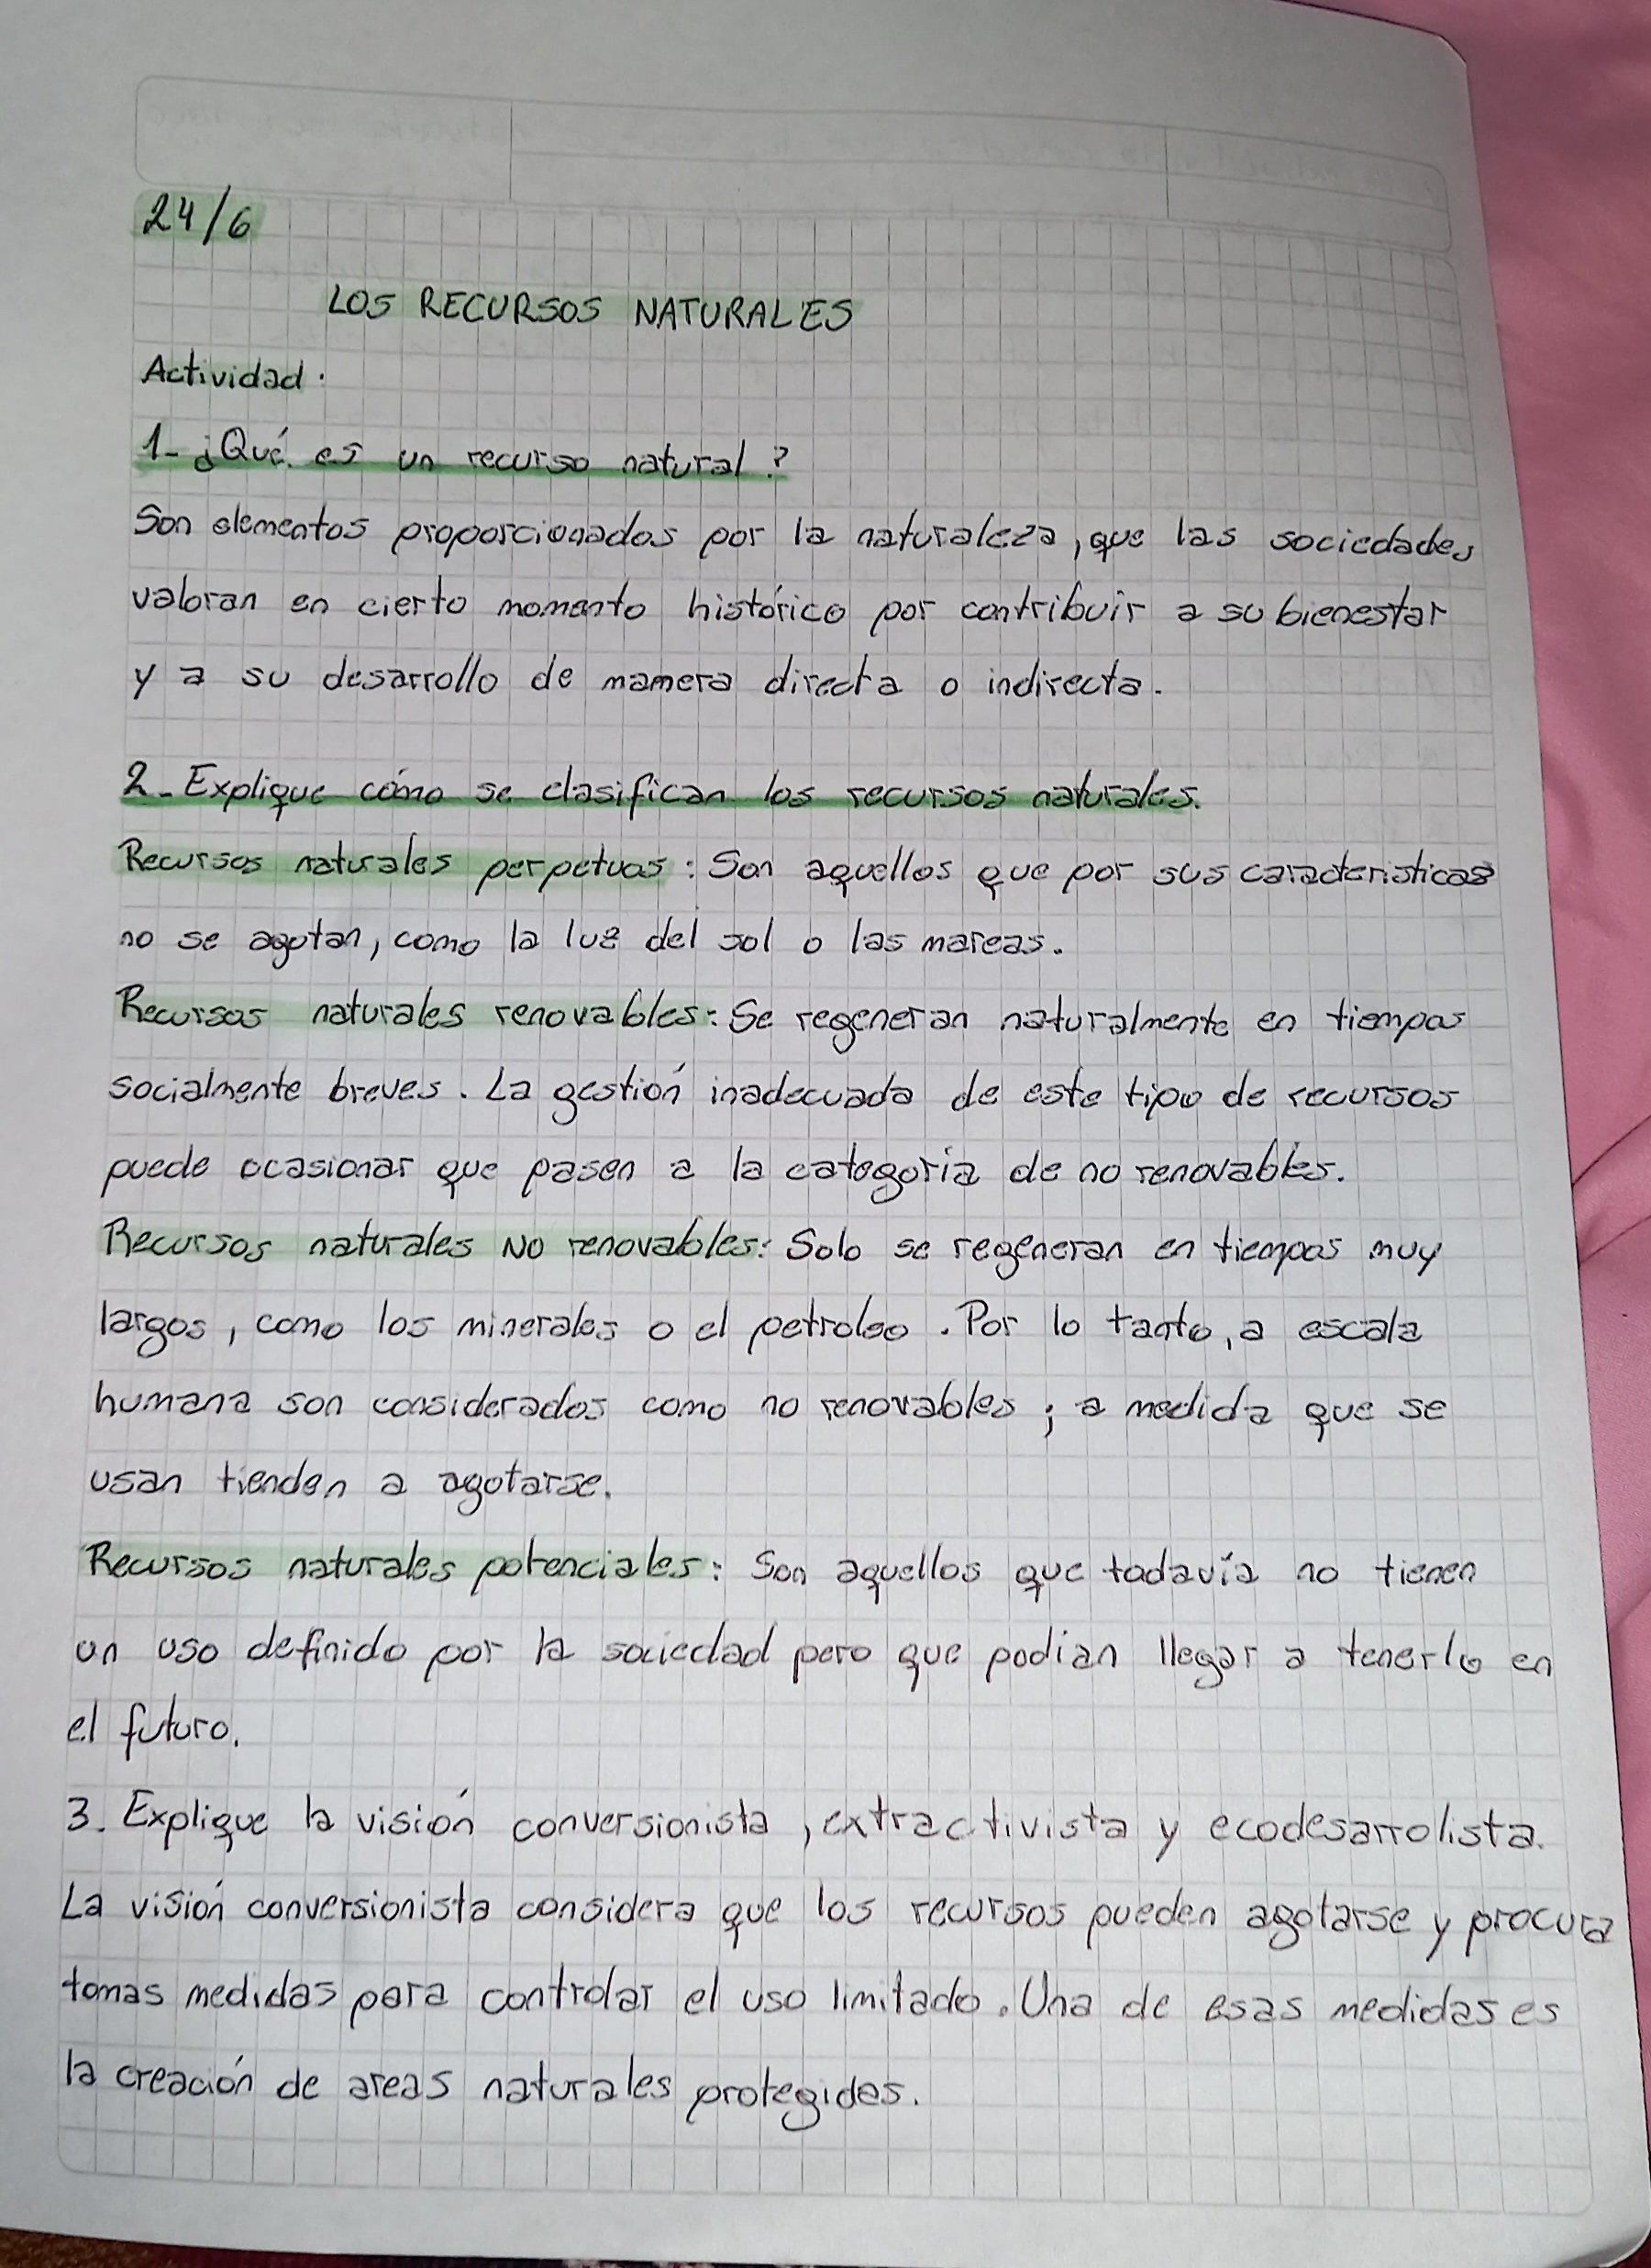 24/6
LOS RECURSOS NATURALES
Actividad.
1- ¿Qué es un recurso natural?
Son elementos proporcionados por la naturaleza, que las sociedades
valoran en cierto momento histórico por contribuir a su bienestar
y a su desarrollo de mamera directa o indirecta.
2- Explique cómo se clasifican los recursos naturales.
Recursos naturales perpetuos: Son aquellos que por sus caracteristicas
no se agotan, como la luz del sol o las mareas.
Recursos naturales renovables: Se regeneran naturalmente en tiempos
socialmente breves. La gestión inadecuada de este tipo de recursos
puede ocasionar que pasen a la categoria de no renovables.
Recursos naturales NO renovables: Solo se regeneran en tiempos muy
largos, como los minerales o el petroleo. Por lo tanto, a escala
humana son considerados como no renovables; a medida que se
usan tienden a agotarse.
Recursos naturales potenciales: Son aquellos que todavía no tienen
un uso definido por la sociedad pero que podian llegar a tenerlo en
el futuro.
3. Explique la visión conversionista, extractivista y ecodesarrolista.
La visión conversionista considera que los recursos pueden agotarse y procura
tomas medidas para controlar el uso limitado. Una de esas medidas es
la creación de areas naturales protegidas.